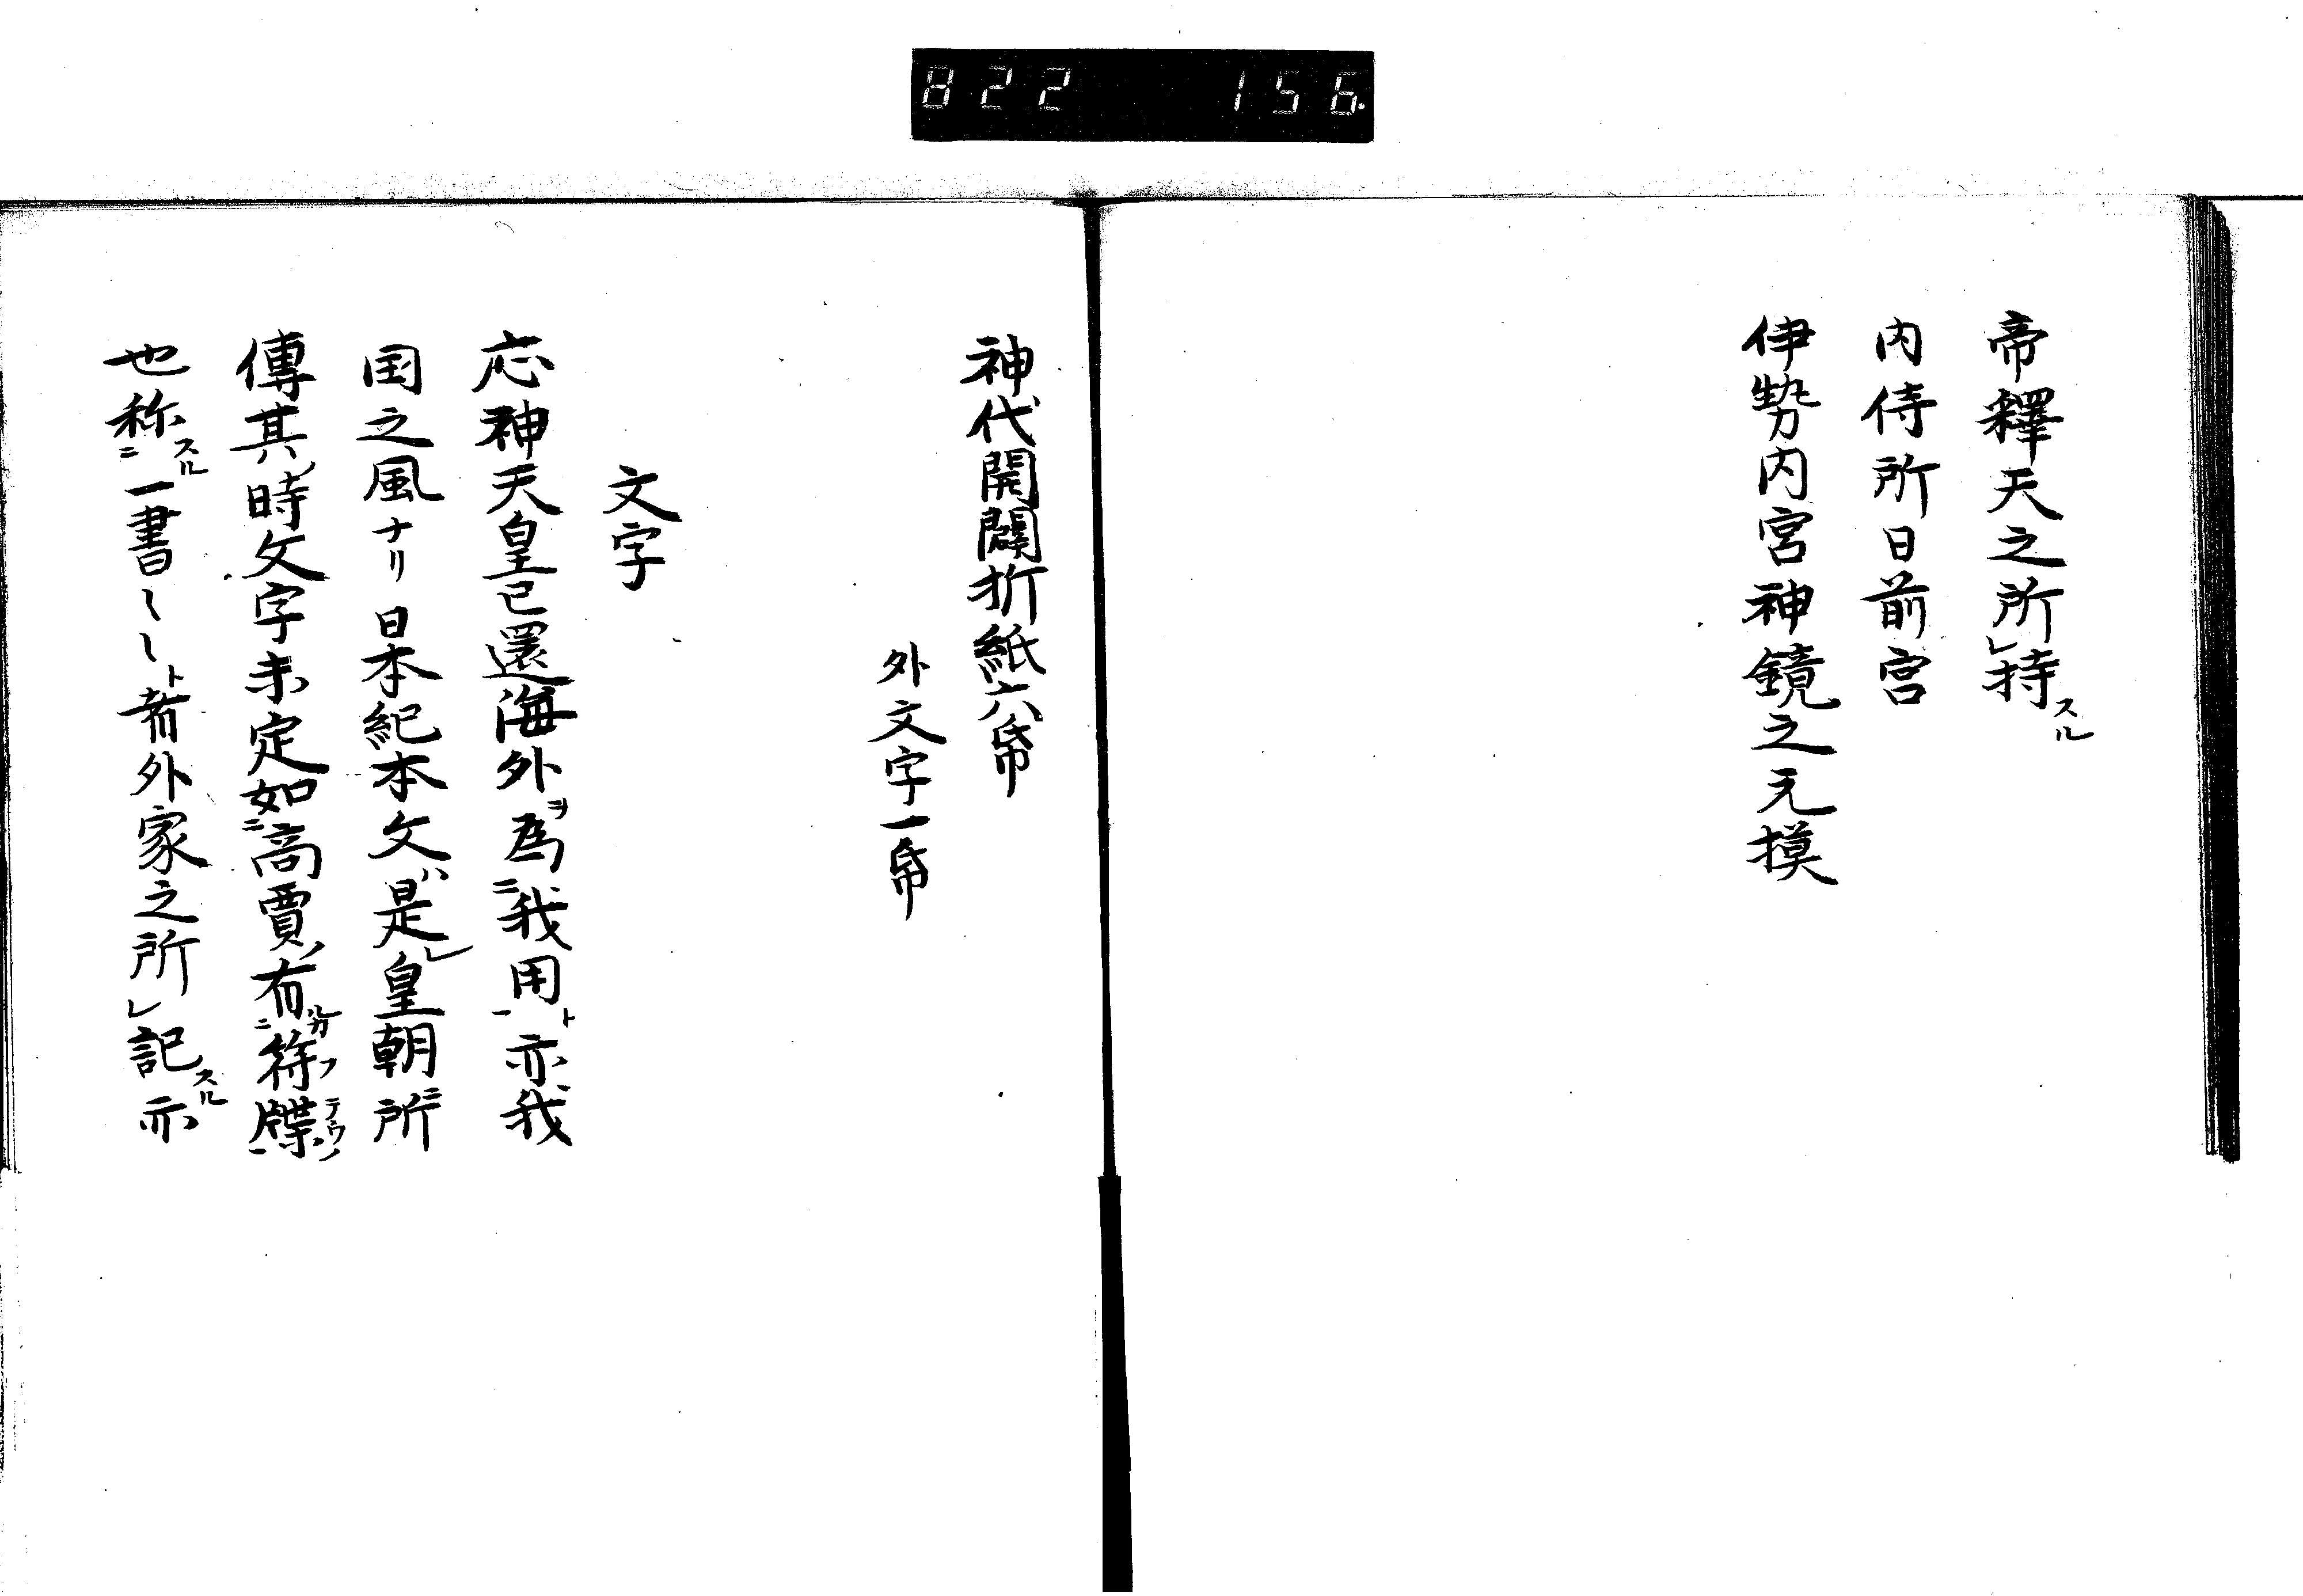 822 156.
帝釋天之所㆑持スル
内侍所日前宮
伊勢内宮神鏡之元摸
神代開闢折紙六帋
外文字一帋
文字
応神天皇已還海外ヲ為㆓我用㆒ト亦我
国之風ナリ日本紀本文ハ是㆑皇朝所
傳其ノ時文字未定如㆓高賈ノ有㆓ルカ符フ牒テウノ㆒
也称㆓スル一書〱〱ト者外家之所㆑記スル亦